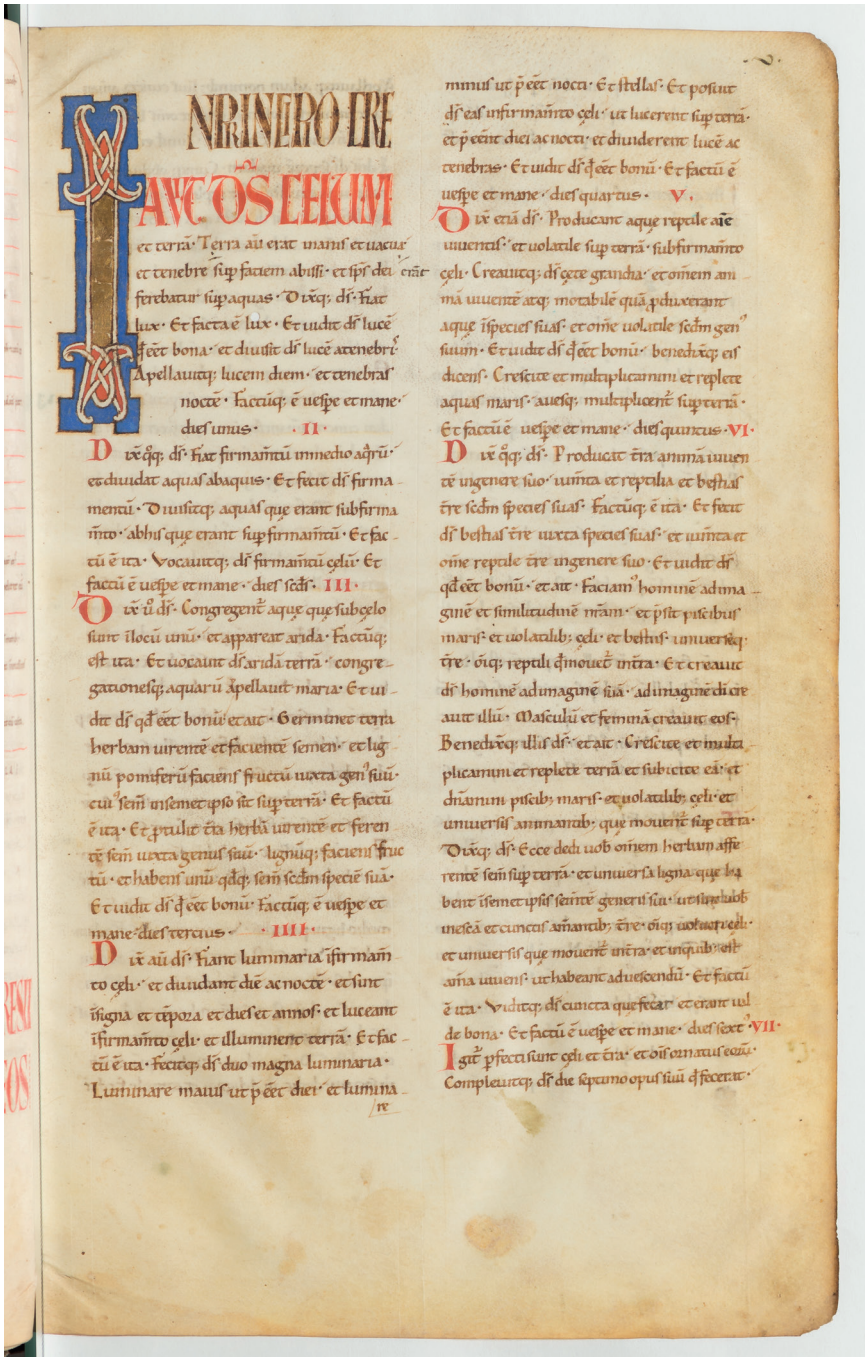 2
IN PRINCIPIO CRE
AVIT DS̄ CELUM
et terrā· Terra aū erat inanis et vacua
et tenebre sup̄ faciem abissi· et sp̄s dei erāt
ferebatur sup̄ aquas· Dixitq; ds̄· Fiat
lux· Et facta ē lux· Et vidit ds̄ lucē
q̄ eēt bona· et divisit ds̄ lucē a tenebris·
Apellavitq; lucem diem· et tenebras
noctē· Factūq; ē vesp̄e et mane·
dies unus· ·II·
Dix̄ q°q; ds̄· Fiat firmam̄tū in medio aq̄rū·
et dividat aquas ab aquis· Et fecit ds̄ firma-
mentū· Divisitq; aquas que erant sub firma
m̄to· ab his que erant sup̄ firmam̄tū· Et fac-
tū ē ita· Vocavitq; ds̄ firmam̄tū cęlū· Et
factū ē vesp̄e et mane· dies scd̄s· III·
Dix̄ v° ds̄· Congregent̄ aque que sub cęlo
sunt ī locū unū· et appareat arida· Factūq;
est ita· Et vocavit ds̄ aridā terrā· congre-
gationesq; aquarū apellavit maria· Et vi-
dit ds̄ qd̄ eēt bonū et ait· Germinet terra
herbam virentē et facientē semen· et lig-
nū pomiferū faciens fructū iuxta gen᾽ suū·
cui᾽ sem̄ in semet ipso sit sup̄ terrā· Et factū
ē ita· Et ꝓtulit t̄ra herbā virentē et feren
tē sem̄ iuxta genus suū· lignūq; faciens fruc
tū· et habens unū qdq; sem̄ scd̄m speciē suā·
Et vidit ds̄ q̄ eēt bonū· Factūq; ē vesp̄e et
mane· dies tercius· ·IIII·
Dix̄ aū ds̄· Fiant luminaria ī firmam̄
to cęli· et dividant diē ac noctē· et sint
ī signa et tēpora et dies et annos· et luceant
ī firmam̄to cęli· et illuminent terrā· Et fac-
tū ē ita· Fecitq; ds̄ duo magna luminaria·
Luminare maius ut p̄ eēt diei· et lumina-
re
minus ut p̄ eēt nocti· Et stellas· Et posuit
ds̄ eas in firmam̄to cęli· ut lucerent sup̄ terrā·
et p̄ eēnt diei ac nocti· et dividerent lucē ac
tenebras· Et vidit ds̄ q̄ eēt bonū· Et factū ē
vesp̄e et mane· dies quartus· V·
Dix̄ etiā ds̄· Producant aque reptile aīe
viventis· et volatile sup̄ terrā· sub firmam̄to
cęli· Creavitq; ds̄ cęte grandia· et om̄em ani
mā viventē atq; motabilē quā ꝓduxerant
aque ī species suas· et om̄e volatile scd̄m gen᾽
suum· Et vidit ds̄ q̄ eēt bonū· benedixitq; eis
dicens· Crescite et multiplicamini et replete
aquas maris· avesq; multiplicent̄ sup̄ terrā·
Et factū ē vesp̄e et mane· dies quintus· VI·
Dix̄ q°q; ds̄· Producat t̄ra animā viven
tē in genere suo· iumta et reptilia et bestias
t̄re scd̄m species suas· Factūq; ē ita· Et fecit
ds̄ bestias t̄re iuxta species suas· et iumta et
om̄e reptile t̄re in genere suo· Et vidit ds̄
qd̄ eēt bonū· et ait· Faciam᾽ hominē ad ima-
ginē et similitudinē nr̄am· et p̄sit piscibus
maris· et volatilib; cęli· et bestiis· universęq;
t̄re· oīq; reptili q̄ movet̄ in t̄ra· Et creavit
ds̄ hominē ad imaginē suā· ad imaginē di cre
avit illū· Masculū et feminā creavit eos·
Benedixitq; illis ds̄· et ait· Crescite et multi-
plicamini et replete terrā et subicite eā· et
dn̄amini piscib; maris· et volatilib; cęli· et
universis animantib; que movent̄ sup̄ terrā·
Dixitq; ds̄· Ecce dedi vob om̄em herbam affe
rentē sem̄ sup̄ terrā· et universa ligna que ha
bent ī semet ipsis sem̄tē generis sui· ut sint vob
in escā et cunctis am̄antib; t̄re· oīq; volucri cęli·
et universis que movent̄ in t̄ra· et in quib; est
am̄a vivens· ut habeant ad vescendū· Et factū
ē ita· Viditq; ds̄ cuncta que fecat et erant val
de bona· Et factū ē vesp̄e et mane· dies sext᾽ VII·
Igit̄ ꝑfecti sunt cęli et t̄ra· et oīs ornatus eorū·
Complevitq; ds̄ die septimo opus suū q̄ fecerat·